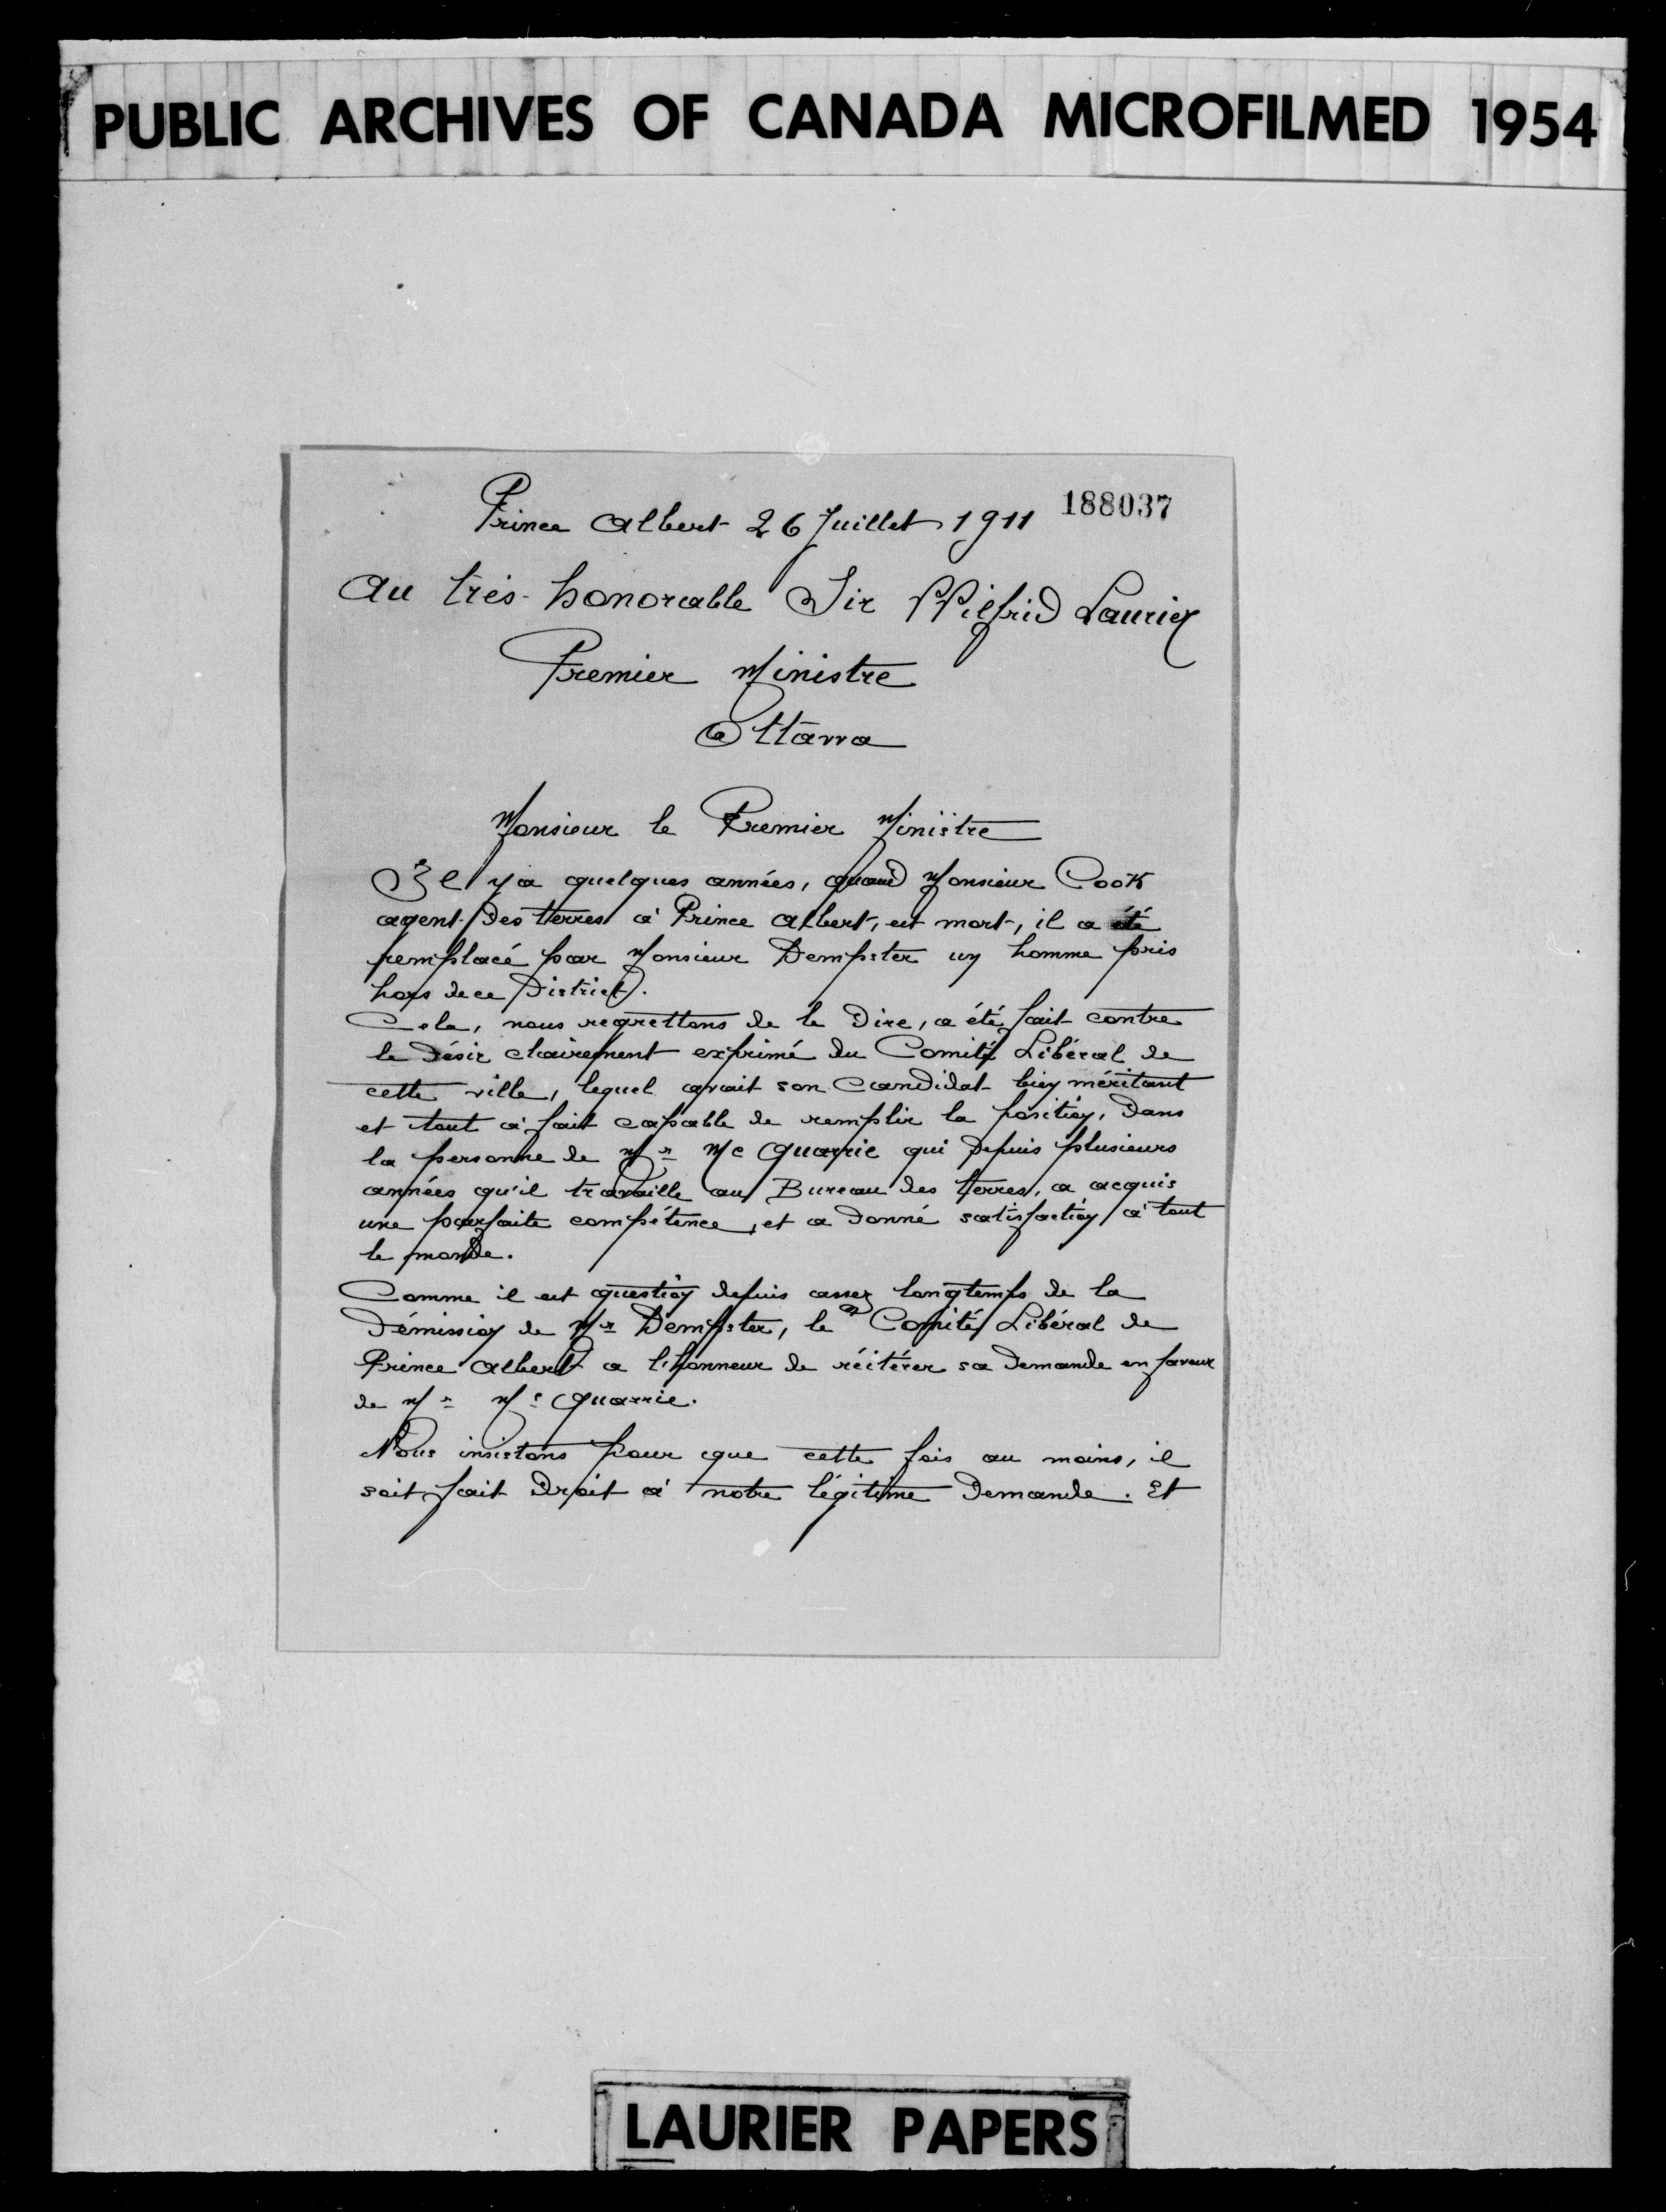 PUBLIC ARCHIVES OF CANADA MICROFILMED 1954
188037
Prince Albert 26 Juillet 1911
Au très-honorable Sir Wilfrid Laurier
Premier Ministre
Ottawa
Monsieur le Premier Ministre
Il y a quelques années, quand Monsieur Cook
agent des terres à Prince Albert, est mort, il a été
remplacé par Monsieur Dempster un homme pris
hors de ce District.
Cela, nous regrettons de le dire, a été fait contre
le désir clairement exprimé du Comité Libéral de
cette ville, lequel avait son candidat bien méritant
et tout à fait capable de remplir la position, dans
la personne de Mr Mc Quarrie qui depuis plusieurs
années qu'il travaille au Bureau des terres, a acquis
une parfaite compétence, et a donné satisfaction à tout
le monde.
Comme il est question depuis assez longtemps de la
démission de Mr Dempster, le Comité Libéral de
Prince Albert a l'honneur de réitérer sa demande en faveur
de Mr Mc Quarrie.
Nous insistons pour que cette fois au moins, il
soit fait droit à notre légitime demande. Et
LAURIER PAPERS